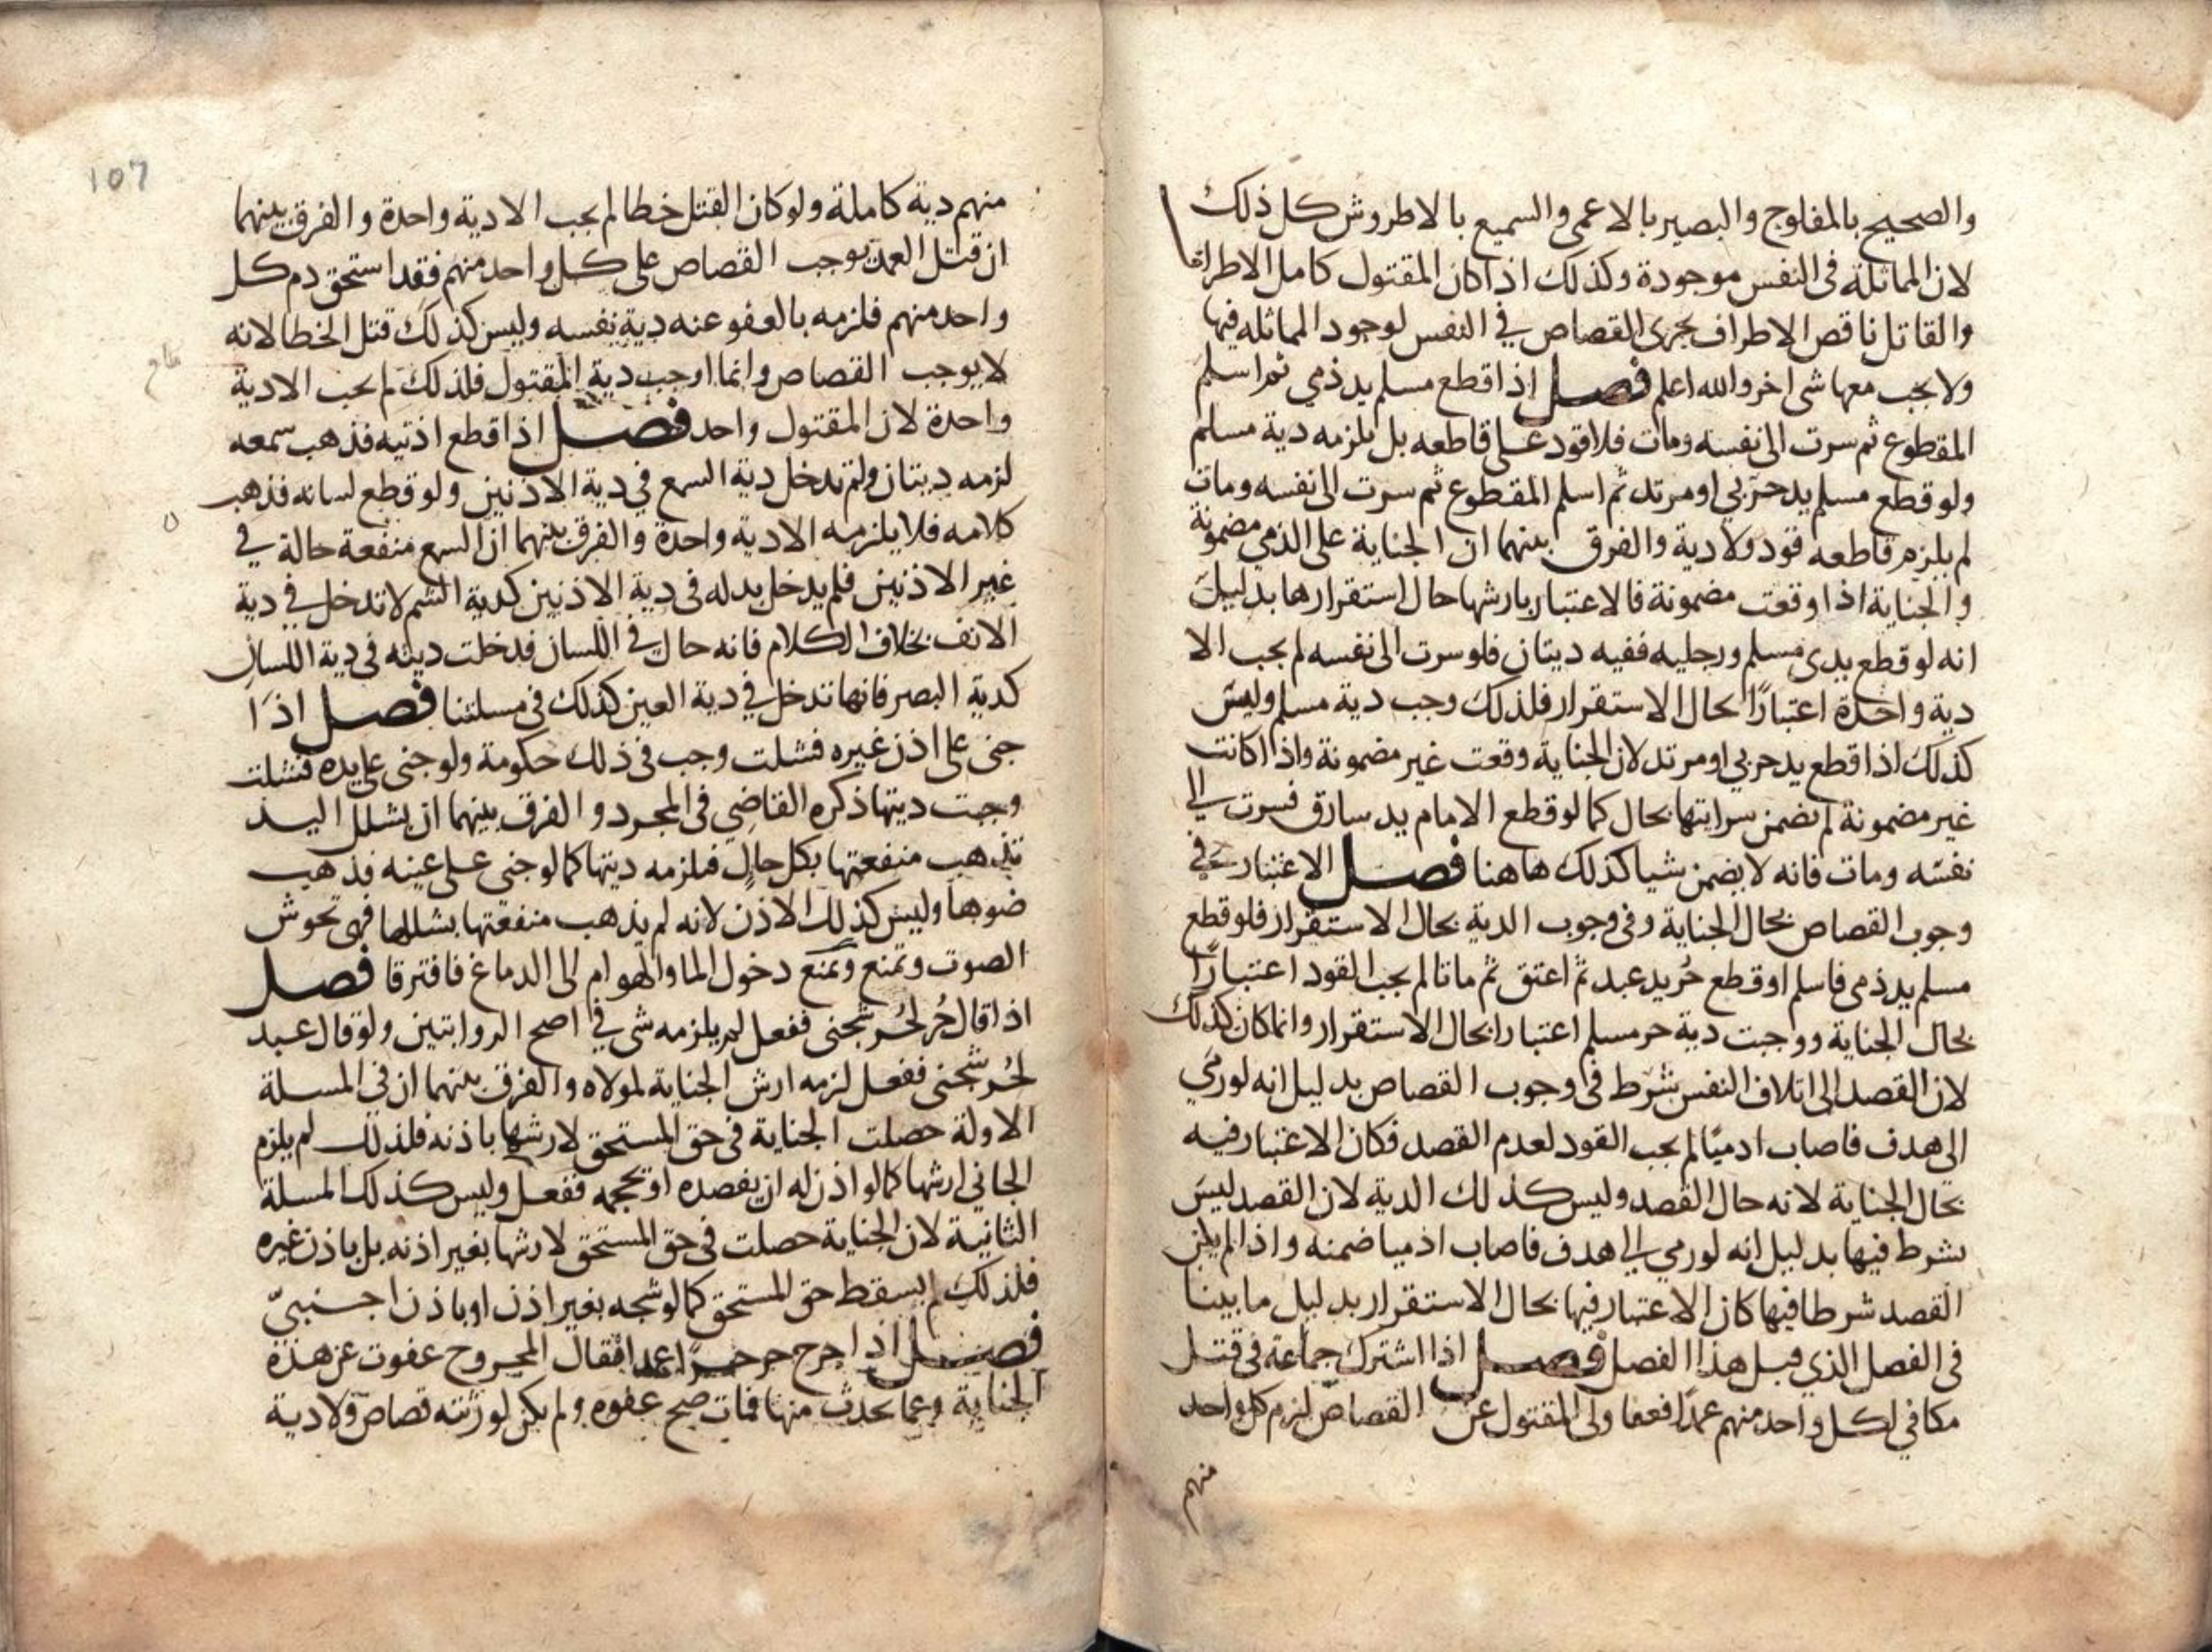 والصحيح بالمفلوج والبصير بالاعمى والسميع بالاطروش كل ذلك
لان المماثلة فى النفس موجودة وكذلك اذا كان المقتول كامل الاطراف
والقاتل ناقص الاطراف يجرى القصاص في النفس لوجود المماثله فيها
ولا يجب معها شى اخر والله اعلم فصل اذا قطع مسلم يد ذمي ثم اسلم
المقطوع ثم سرت الى نفسه ومات فلا قود على قاطعه بل يلزمه دية مسلم
ولو قطع مسلم يد حربي او مرتد ثم اسلم المقطوع ثم سرت الى نفسه ومات
لم يلزم قاطعه قود ولا دية والفرق بينهما ان الجناية على الذمي مضمونة
والجناية اذا وقعت مضمونة فالاعتبار بارشها حال استقرارها بدليل
انه لو قطع يدى مسلم ورجليه ففيه ديتان فلو سرت الى نفسه لم يجب الا
دية واحدة اعتبارًا بحال الاستقرار فلذلك وجب دية مسلم وليس
كذلك اذا قطع يد حربي او مرتد لان الجناية وقعت غير مضمونة واذا كانت
غير مضمونة لم يضمن سرايتها بحال كما لو قطع الامام يد سارق فسرت الى
نفسه ومات فانه لا يضمن شيا كذلك هاهنا فصل الاعتبار في
وجوب القصاص بحال الجناية وفى وجوب الدية بحال الاستقرار فلو قطع
مسلم يد ذمى فاسلم او قطع حُر يد عبد ثم اعتق ثم ماتا لم يجب القود اعتبارًا
بحال الجناية ووجبت دية حر مسلم اعتبارا بحال الاستقرار وانما كان كذلك
لان القصد الى اتلاف النفس شرط فى وجوب القصاص بدليل انه لو رمى
الى هدف فاصاب ادميًا لم يجب القود لعدم القصد فكان الاعتبار فيه
بحال الجناية لانه حال القصد وليس كذلك الدية لان القصد ليس
بشرط فيها بدليل انه لو رمي الى هدف فاصاب ادميا ضمنه واذا لم يكن
القصد شرطا فيها كان الاعتبار فيها بحال الاستقرار بدليل ما بينا
فى الفصل الذي قبل هذا الفصل فصل اذا اشترك جماعة فى قتل
مكافي لكل واحد منهم عمدًا فعفا ولى المقتول عن القصاص لزم كل واحد
منهم
107
منهم دية كاملة ولو كان القتل خطا لم يجب الا دية واحدة والفرق بينهما
ان قتل العمد يوجب القصاص على كل واحد منهم فقد استحق دم كل
واحد منهم فلزمه بالعفو عنه دية نفسه وليس كذلك قتل الخطا لانه
لا يوجب القصاص وانما اوجب دية المقتول فلذلك لم يجب الا دية
واحدة لان المقتول واحد فصل اذا قطع اذنيه فذهب سمعه
لزمه ديتان ولم تدخل دية السمع في دية الاذنين ولو قطع لسانه فذهب
كلامه فلا يلزمه الا دية واحدة والفرق بينهما ان السمع منفعة حالة في
غير الاذنين فلم يدخل بدله فى دية الاذنين كدية الشم لا تدخل في دية
الانف بخلاف الكلام فانه حال في اللسان فدخلت ديته فى دية اللسان
كدية البصر فانها تدخل في دية العين كذلك فى مسلتنا فصل اذا
جنى على اذن غيره فشلت وجب فى ذلك حكومة ولو جنى على يده فشلت
وجبت ديتها ذكره القاضي فى المجرد والفرق بينهما ان بشلل اليد
تذهب منفعتها بكل حال فلزمه ديتها كما لو جنى على عينه فذهب
ضوها وليس كذلك الاذن لانه لم يذهب منفعتها بشللها فهى تحوش
الصوت وتمنع وتمنع دخول الما والهوام الى الدماغ فافترقا فصل
اذا قال حُر لحُر شجنى ففعل لم يلزمه شى في اصح الروايتين ولو قال عبد
لحُر شجنى ففعل لزمه ارش الجناية لمولاه والفرق بينهما ان في المسلة
الاولة حصلت الجناية فى حق المستحق لارشها باذنه فلذلك لم يلزم
الجاني ارشها كما لو اذن له ان يفصده او يحجمه ففعل وليس كذلك المسلة
الثانية لان الجناية حصلت فى حق المستحق لارشها بغير اذنه بل باذن غيره
فلذلك لم يسقط حق المستحق كما لو شجه بغير اذن او باذن اجنبيّ
فصل اذا جرح حر حرًا عمدا فقال المجروح عفوت عن هذة
الجناية وعما يحدث منها فمات صح عفوه ولم يكن لورثته قصاص ولا دية